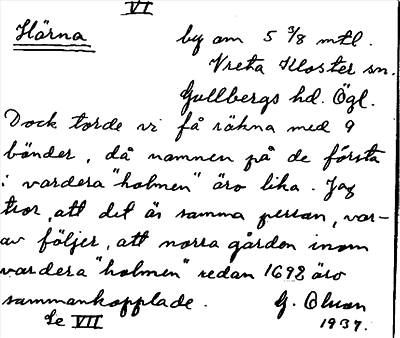 VI
Härna by om 5 3/8 mtl.
Vreta Kloster sn.
Gullbergs hd. Ögl.
Dock torde vi få räkna med 9
bönder, då namnen på de första
i vardera "holmen" äro lika. Jag
tror, att det är samma person, var-
av följer, att norra gården inom
vardera "holmen" redan 1692 äro
sammankopplade. G.
Se VII 1937.